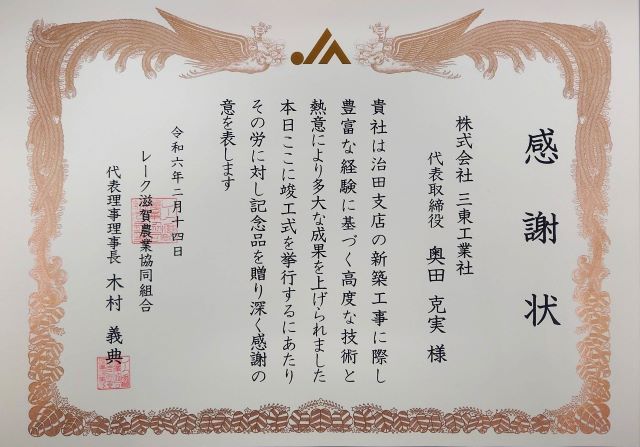 感謝状
株式会社 三東工業社
代表取締役 奥田 克実 様
貴社は治田支店の新築工事に際し
豊富な経験に基づく高度な技術と
熱意により多大な成果を上げられました
本日ここに竣工式を挙行するにあたり
その労に対し記念品を贈り深く感謝の
意を表します
令和六年二月十四日
レーク滋賀農業協同組合
代表理事理事長 木村 義典